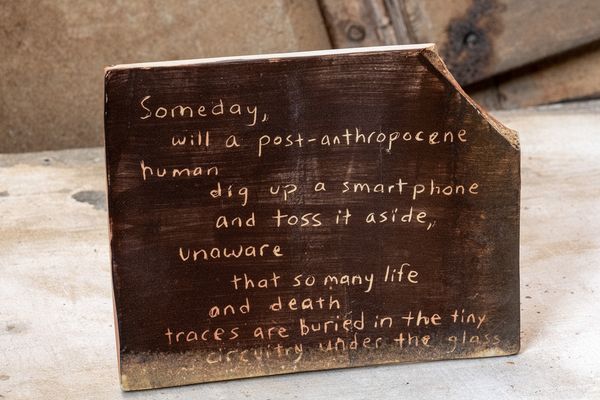 Someday,
will a post-anthropocene
human
dig up a smartphone
and toss it aside,
unaware
that so many life
and death
traces are buried in the tiny
circuitry under the glass